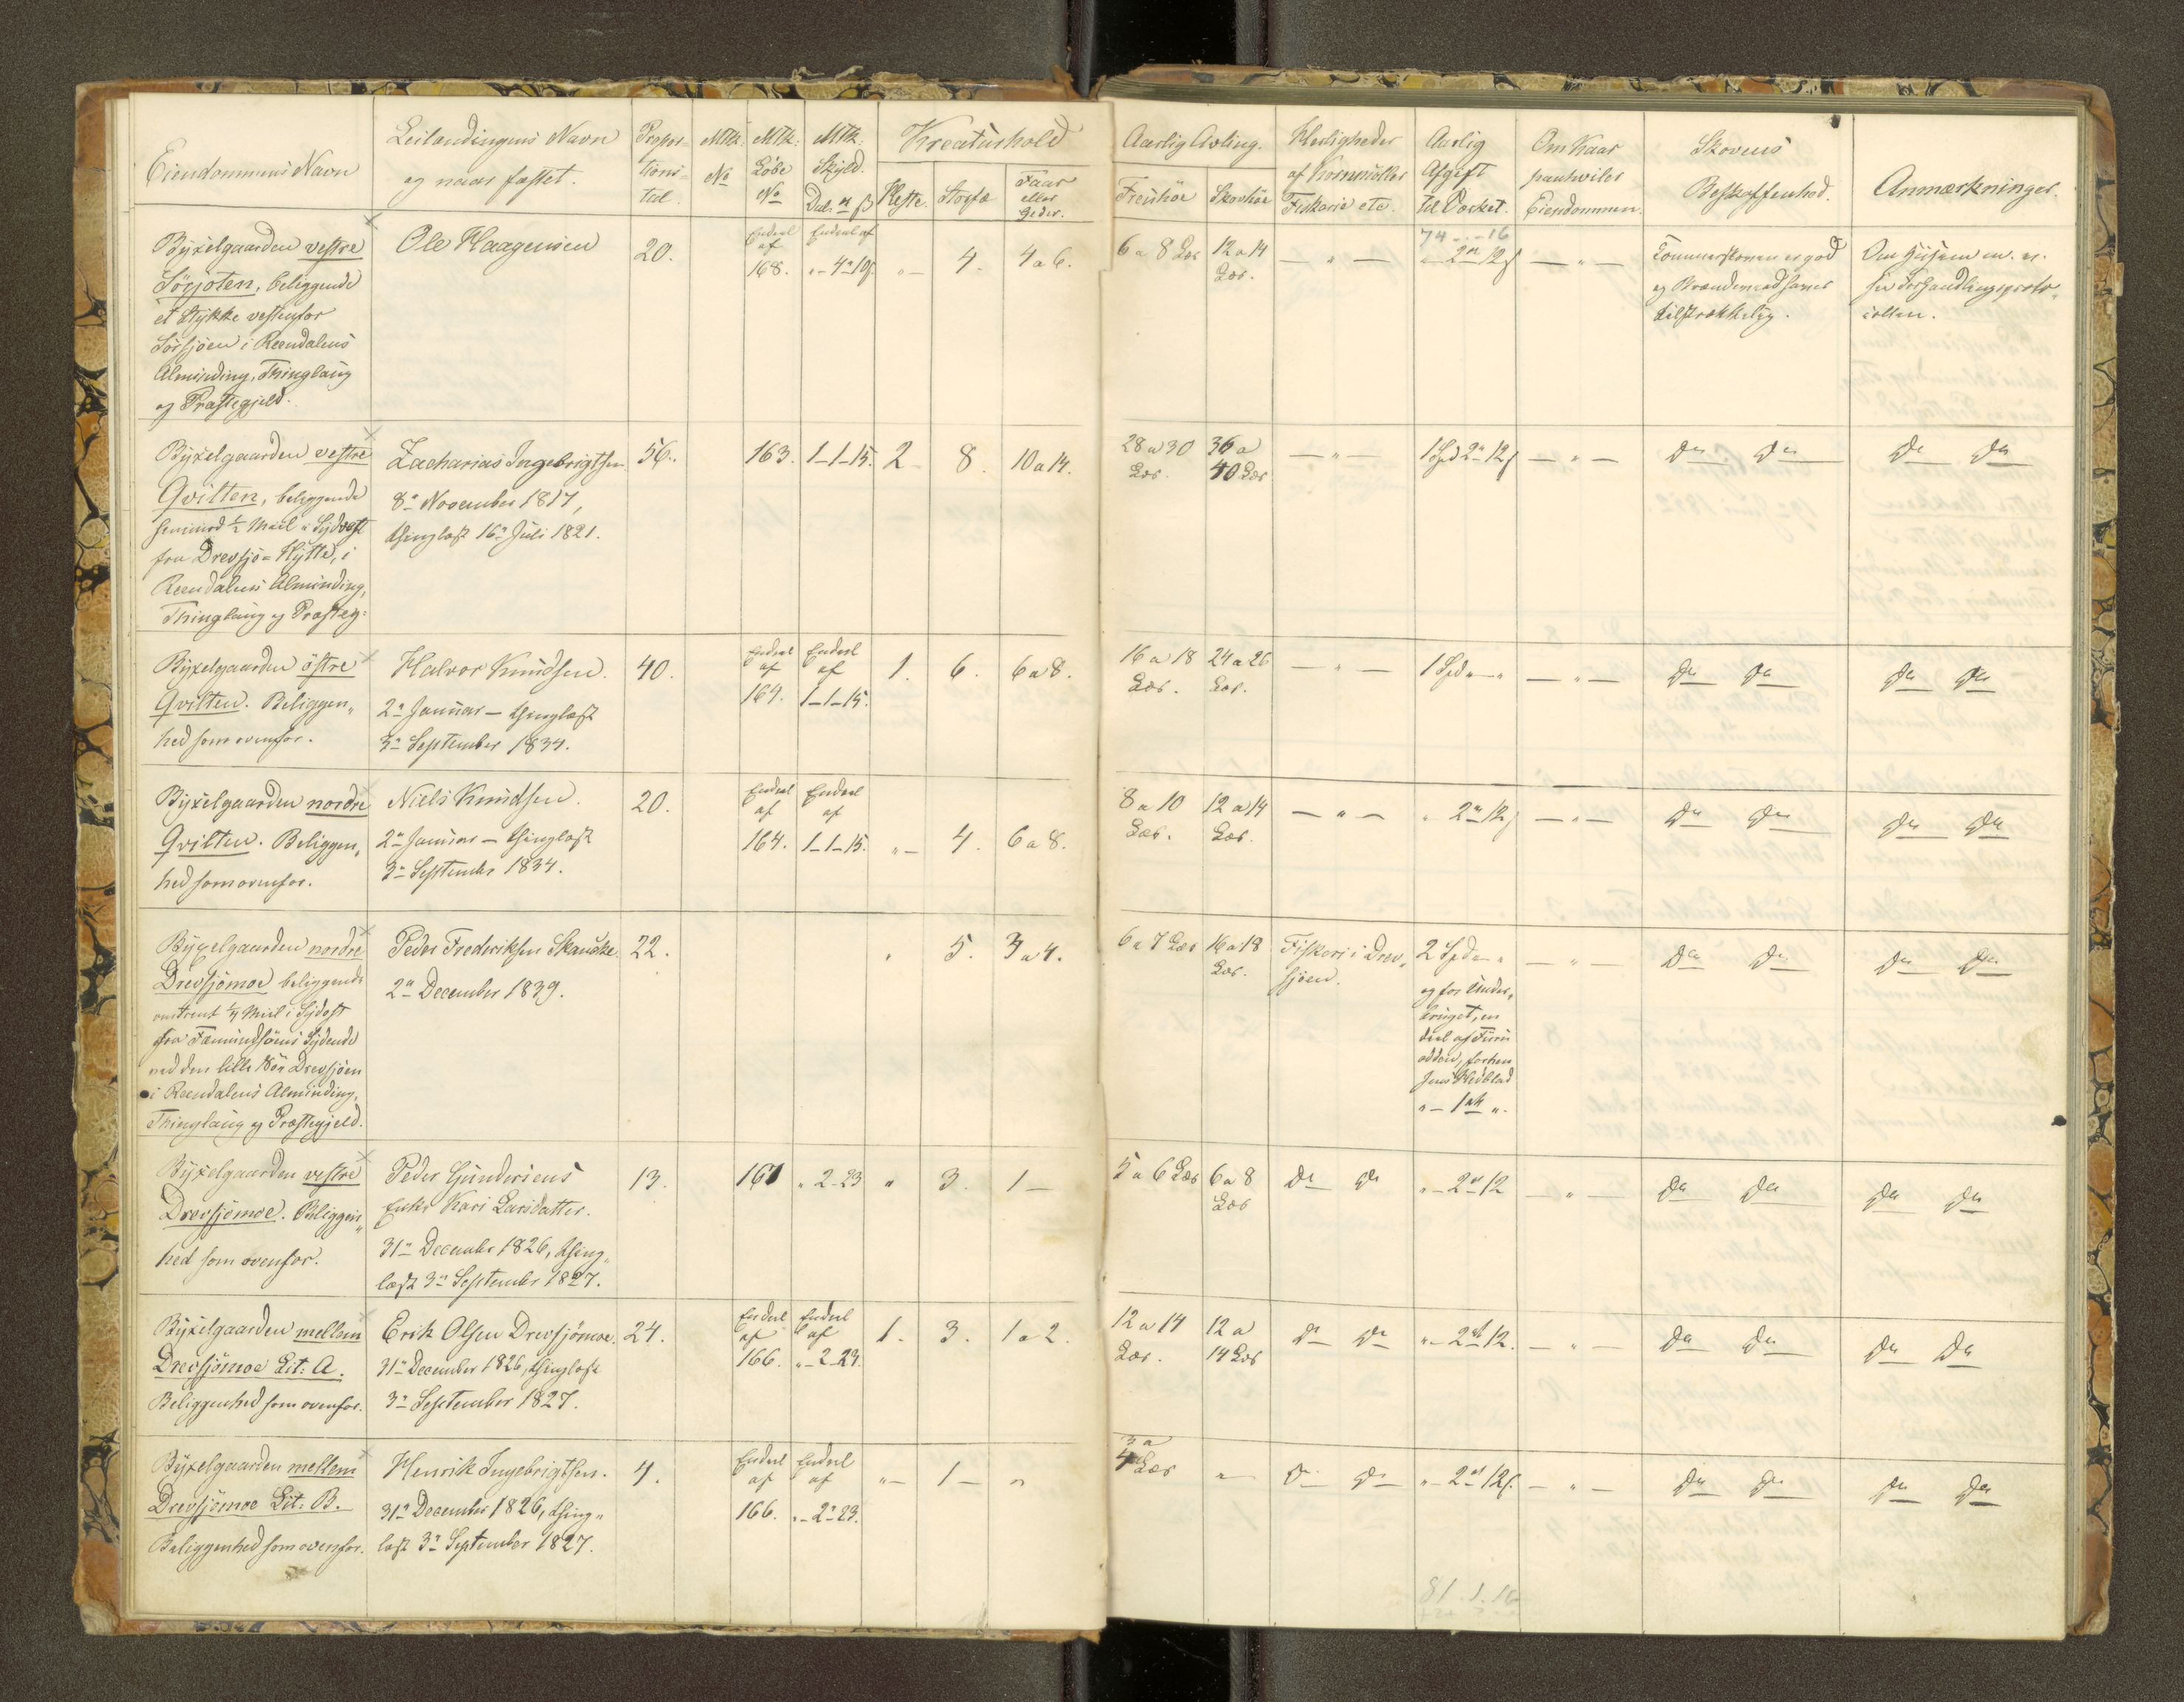 Eiendommens Navn
Leilændingens Navn
og naar fæstet.
Propor-
tions-
tal.
Mtk:
No
Mtk:
Løbe
No
Mtk:
Skyld.
Dal: ß
Kreaturhold
Heste. Storfæ Faar
eller
Geder.
Aarlig Avling.
Frøihøe Skovhøe
Herligheder
af Kornmøller
Fiskerie etc.
Aarlig
Afgift
til Værket.
Om Kaar
paahviler
Eiendommen.
Skovens
Beskaffenhed.
Anmærkninger.
Byxelgaarden vestre
Sørjoten, beliggende
et Stykke vestenfor
Sørsjøen i Reendalens
Alminding, Thinglaug
og Præstegjeld.
Ole Haagensen
20.
Endeel
af
168.
Endeel af
„ - 4 - 19
„ - 4. 4 a 6.
6 a 8 Læs
12 a 14
Læs.
— „ —
74 - „ - 16
„ 2 12 ß
— „ —
Tømmerskoven er god
og Brændeved haves
tilstrækkelig.
Om Husene m. v.
see Forhandlingsproto-
collen.
Byxelgaarden vestre
Qvilten, beliggende
henimod ½ Miil i Sydvest
fra Drevsjø-Hytte, i
Reendalens Alminding,
Thinglaug og Præsteg:
Zacharias Ingebrigtsen
8de November 1817,
thinglæst 16de Juli 1821.
56.
163. 1-1-15. 2 8. 10 a 14.
28 a 30
Læs.
36 a
40 Læs
— „ —
1 Spd 2 12 ß
— „ —
Do Do
Do Do
Byxelgaarden østre
Qvilten. Beliggen-
hed som ovenfor.
Halvor Knudsen.
2de Januar — thinglæst
3de September 1834.
40.
Endeel
af
164.
Endeel
af
1-1-15.
1. 6. 6 a 8.
16 a 18
Læs.
24 a 26
Læs.
— „ —
1 Spd „ - „
— „ —
Do Do
Do Do
Byxelgaarden nordre
Qvilten. Beliggen-
hed som ovenfor.
Niels Knudsen.
2de Januar — thinglæst
3de September 1834.
20.
Endeel
af
164.
Endeel
af
1-1-15.
„ - 4. 6 a 8.
8 a 10
Læs.
12 a 14
Læs.
— „ —
„ 2 12 ß
— „ —
Do Do
Do Do
Byxelgaarden nordre
Drevsjømoe beliggende
omtrent ¼ Miil i Sydost
fra Fæmundsøens Sydende
ved den lille Sø Drevsjøen
i Reendalens Alminding,
Thinglaug og Præstegjeld.
Peder Frederiksen Skancke.
2de December 1839.
22.
„ 5. 3 a 4.
6 a 7 Læs
16 a 18
Læs.
Fiskeri i Drev-
sjøen.
2 Spd „ „
og for Under-
bruget, en
deel af Furu
odden, forhen
Jens Hedblad
„ - 1 „.
— „ —
Do Do
Do Do
Byxelgaarden vestre
Drevsjømoe. Beliggen-
hed som ovenfor.
Peder Gundersens
Enke Kari Larsdatter.
31te December 1826, thing-
læst 3de September 1827.
13.
161 „ 2-23 „ 3. 1 —
5 a 6 Læs
6 a 8
Læs
Do Do
„ - 2 12
— „ —
Do Do
Do Do
Byxelgaarden mellem
Drevsjømoe Lit: A.
Beliggenhed som ovenfor.
Erik Olsen Drevsjømoe.
31te December 1826, thinglæst
3de September 1827.
24.
Endeel
af
166.
Endeel
af
„ - 2-23.
1. 3. 1 a 2.
12 a 14
Læs.
12 a
14 Læs
Do Do
„ - 2 12.
— „ —
Do Do
Do Do
Byxelgaarden mellem
Drevsjømoe Lit: B.
Beliggenhed som ovenfor.
Henrik Ingebrigtsen.
31te December 1826, thing-
læst 3de September 1827.
4.
Endeel
af
166.
Endeel
af
„ - 2-23.
„ - 1 - „
3 a
4 Læs
„
Do Do
„ - 2 12 ß.
— „ —
Do Do
Do Do
81. 1. 16